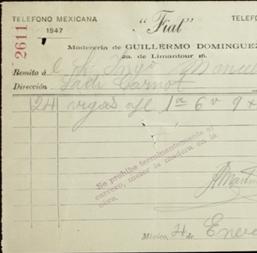 TELEFONO MEXICANA "Fiat" TELEFO
1947 Maderería de GUILLERMO DOMINGUEZ
2611
2a. de Limantour 16.
Remito á
Dirección Sadi Carnot
24 vigas de 1a 6 v 9 x
Se prohibe terminantemente al
carrero, meter la madera en la
obra.
México, 4 de Enero